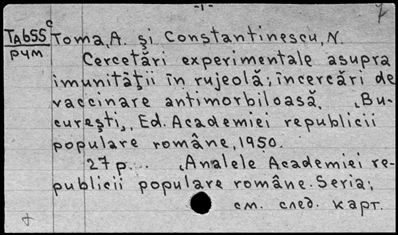 -1-
TA655c Toma, A. şi Constantinescu, N.
рум
Cercetări experimentale asupra
imunităţii în rujeolă; încercări de
vaccinare antimorbiloasă. „Bu-
cureşti„, Ed. Academiei republicii
populare române, 1950.
27 p... „Analele Academiei re-
publicii populare române. Seria;
см. след. карт.